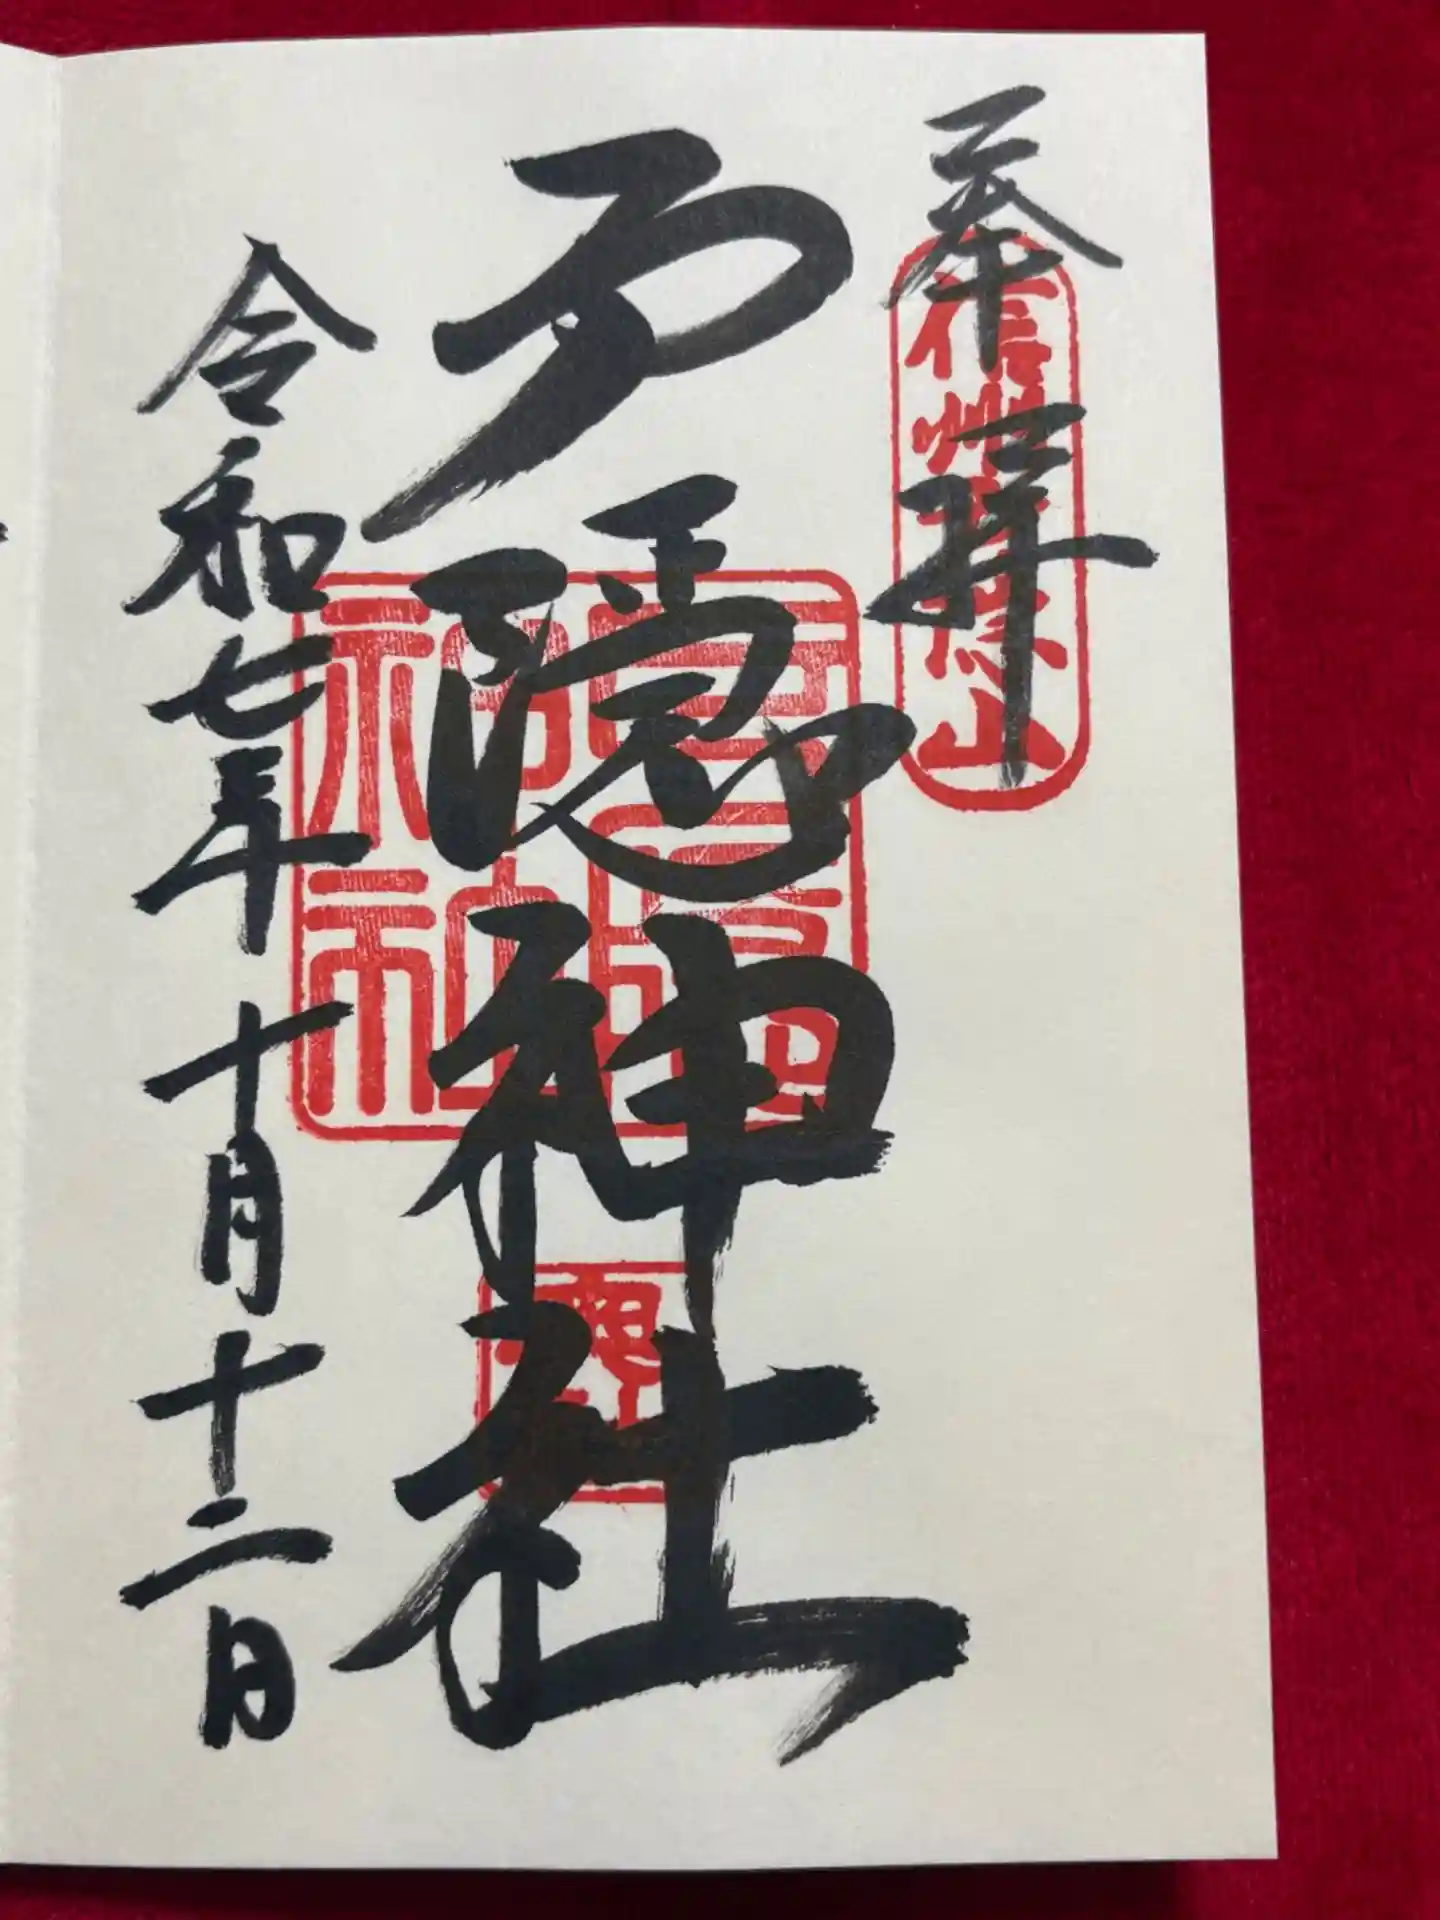 奉拝
信州戸隠山
戸隠神社
戸隠神社
令和七年十月十二日